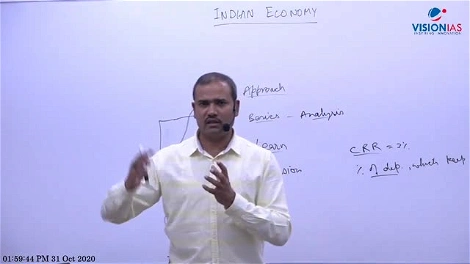 INDIAN ECONOMY
VISIONIAS
INSPIRING INNOVATION
Approach
Basics - Analysis
Learn
sion
CRR = 3%
% of dep, which keep
01:59:44 PM 31 Oct 2020